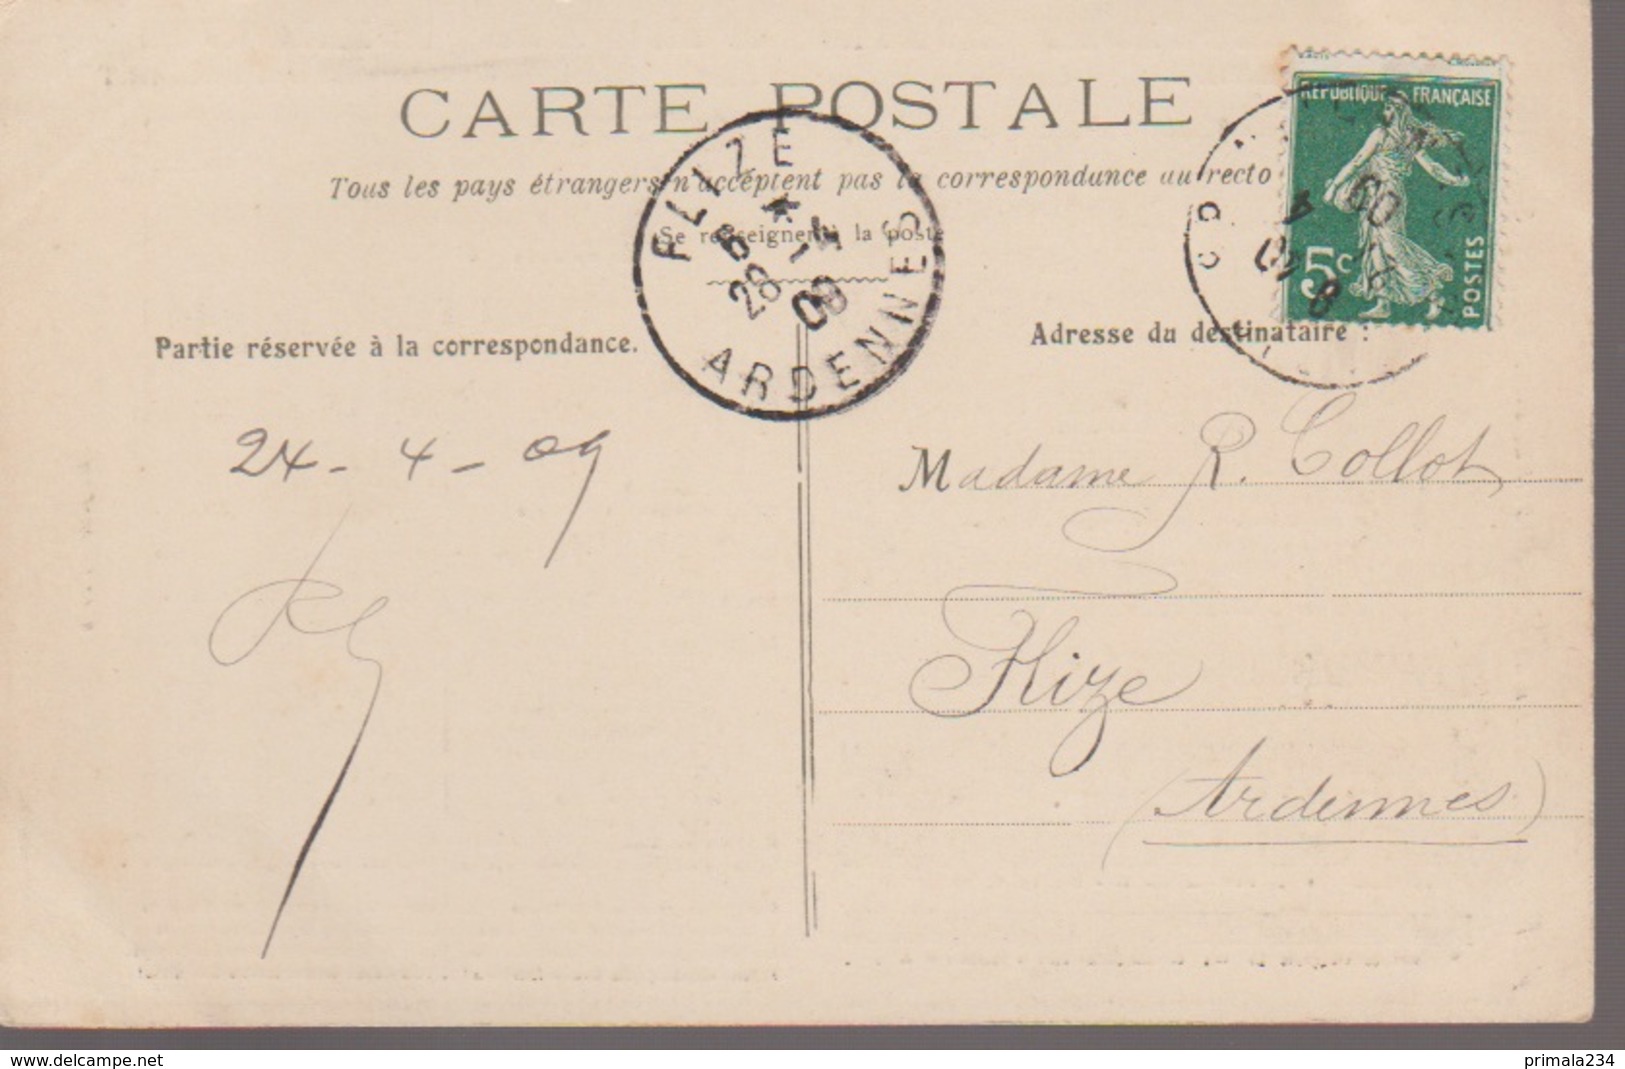 CARTE POSTALE
Tous les pays étrangers n'acceptent pas la correspondance au recto
Se renseigner à la poste
RÉPUBLIQUE FRANÇAISE
5c
POSTES
FLIZE
ARDENNES
28 - 4
09
Partie réservée à la correspondance.
Adresse du destinataire :
24 - 4 - 09
Madame R. Collot
Flize
(Ardennes)
delcampe.net
primala234